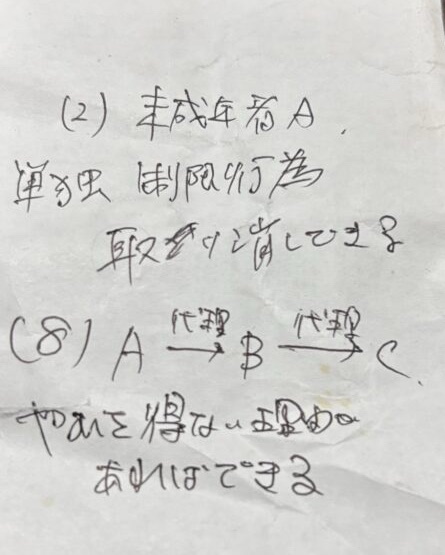 (2) 未成年者A、
単独 制限行為
取り消しできる
(8) A 代理→ B 代理→ C
やむを得ない理由が
あればできる